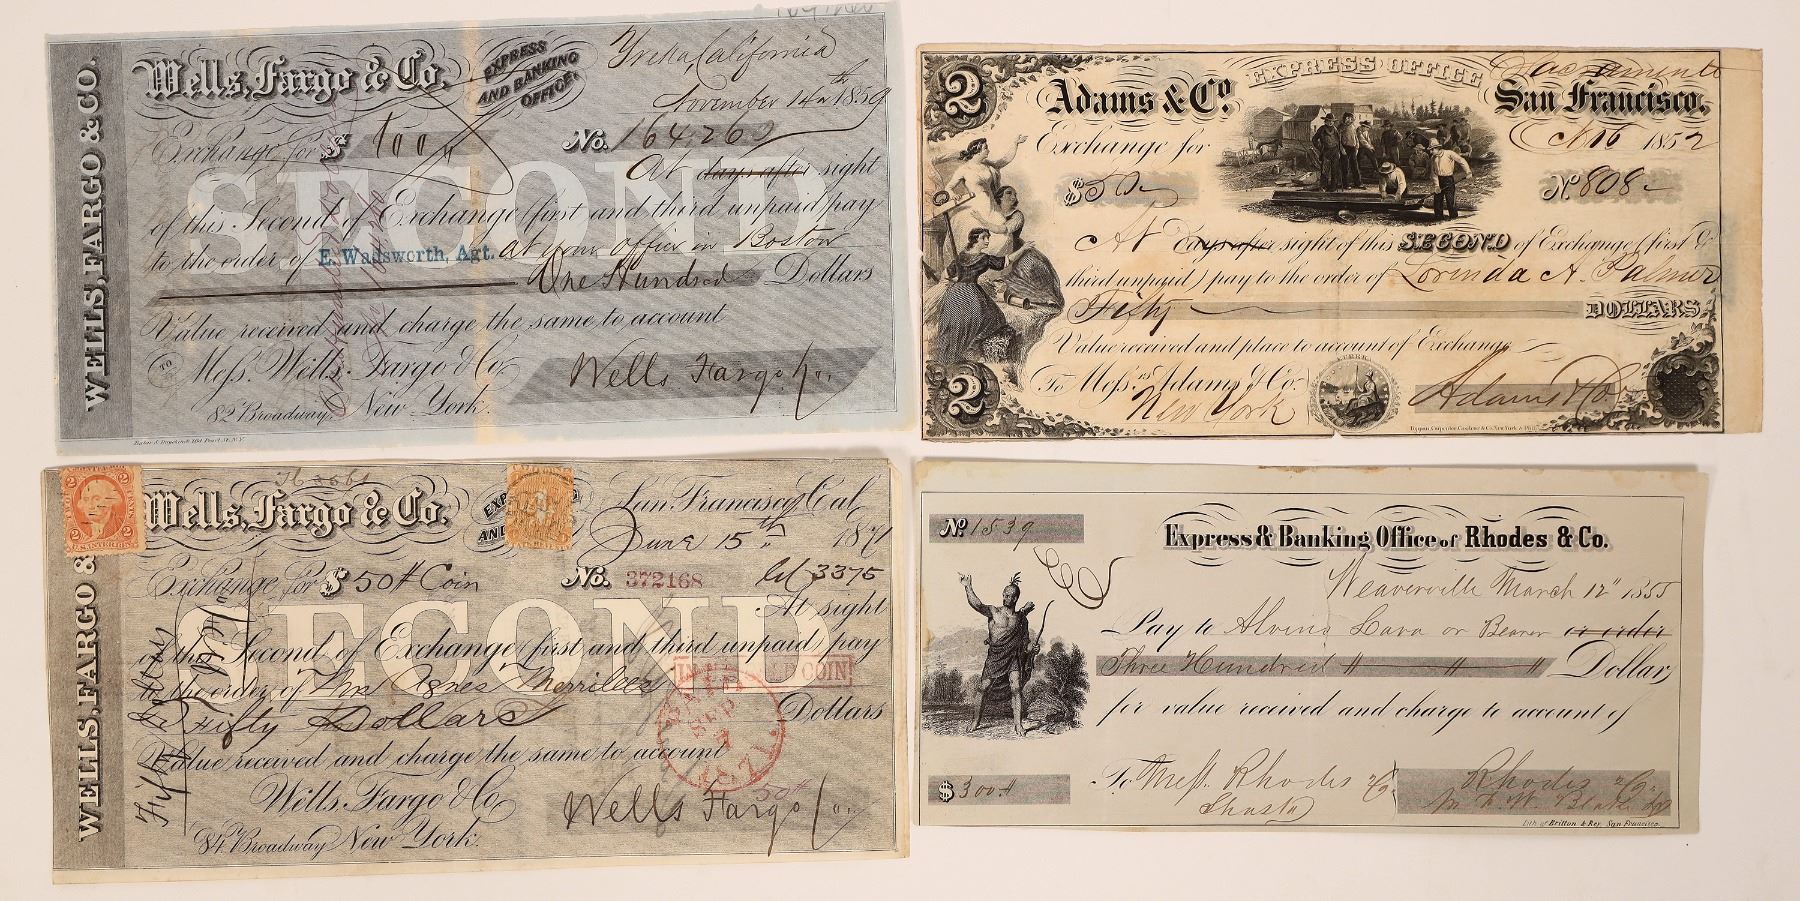 WELLS, FARGO & CO.
Wells, Fargo & Co.
EXPRESS
AND BANKING
OFFICE.
Yreka, California
November 14th 1859
Exchange for $ 100
No. 16426
SECOND
At days after sight
of this Second of Exchange (first and third unpaid) pay
to the order of E. Wadsworth, Agt. at your office in Boston
One Hundred Dollars
Value received and charge the same to account
TO
Mess. Wells, Fargo & Co.
82 Broadway, New York.
Wells Fargo & Co.
2
EXPRESS OFFICE
Sacramento
Adams & Co.
San Francisco.
Exchange for
Oct 16 1852
$ 50
No 808
At days after sight of this SECOND of Exchange (first &
third unpaid) pay to the order of Lorinda A. Palmer
Fifty DOLLARS
Value received and place to account of Exchange
2
To Mess. rs Adams & Co.
New York
Adams & Co
Toppan, Carpenter, Casilear & Co. New York & Phil.
WELLS, FARGO &
2 2
Wells, Fargo & Co.
San Francisco, Cal
June 15th 1871
Exchange for $ 50 Coin
No. 372168
SECOND
At sight
of this Second of Exchange (first and third unpaid) pay
to the order of Mrs Agnes Merrilees
COIN
Fifty Dollars Dollars
Value received and charge the same to account
Wells, Fargo & Co
84 Broadway New York.
Wells Fargo & Co
No. 1539
Express & Banking Office of Rhodes & Co.
Weaverville March 12" 1855
Pay to Alvino Lava or Bearer or order
Three Hundred Dollars,
for value received and charge to account of
$ 300
To Mess. Rhodes & Co.
Shasta
Rhodes & Co.
Lith of Britton & Rey San Francisco.